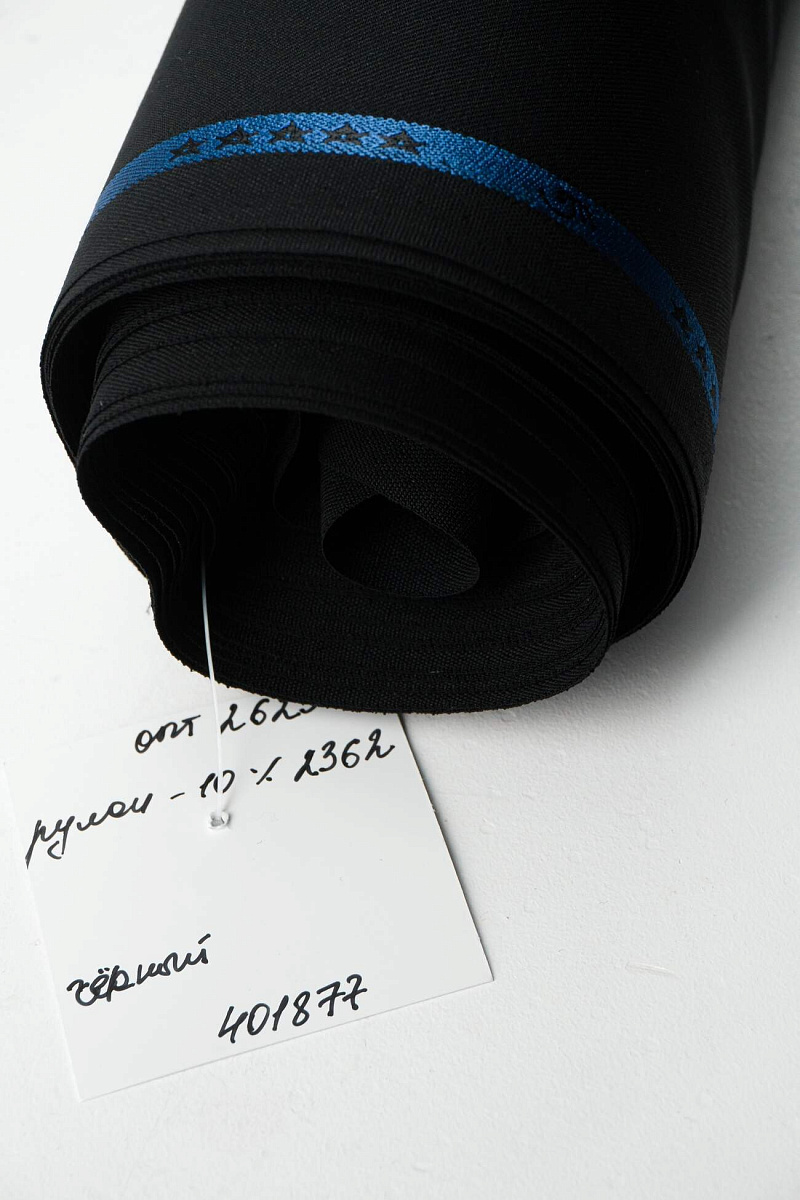 опт 262
рулон - 10 % 2362
чёрный
401877